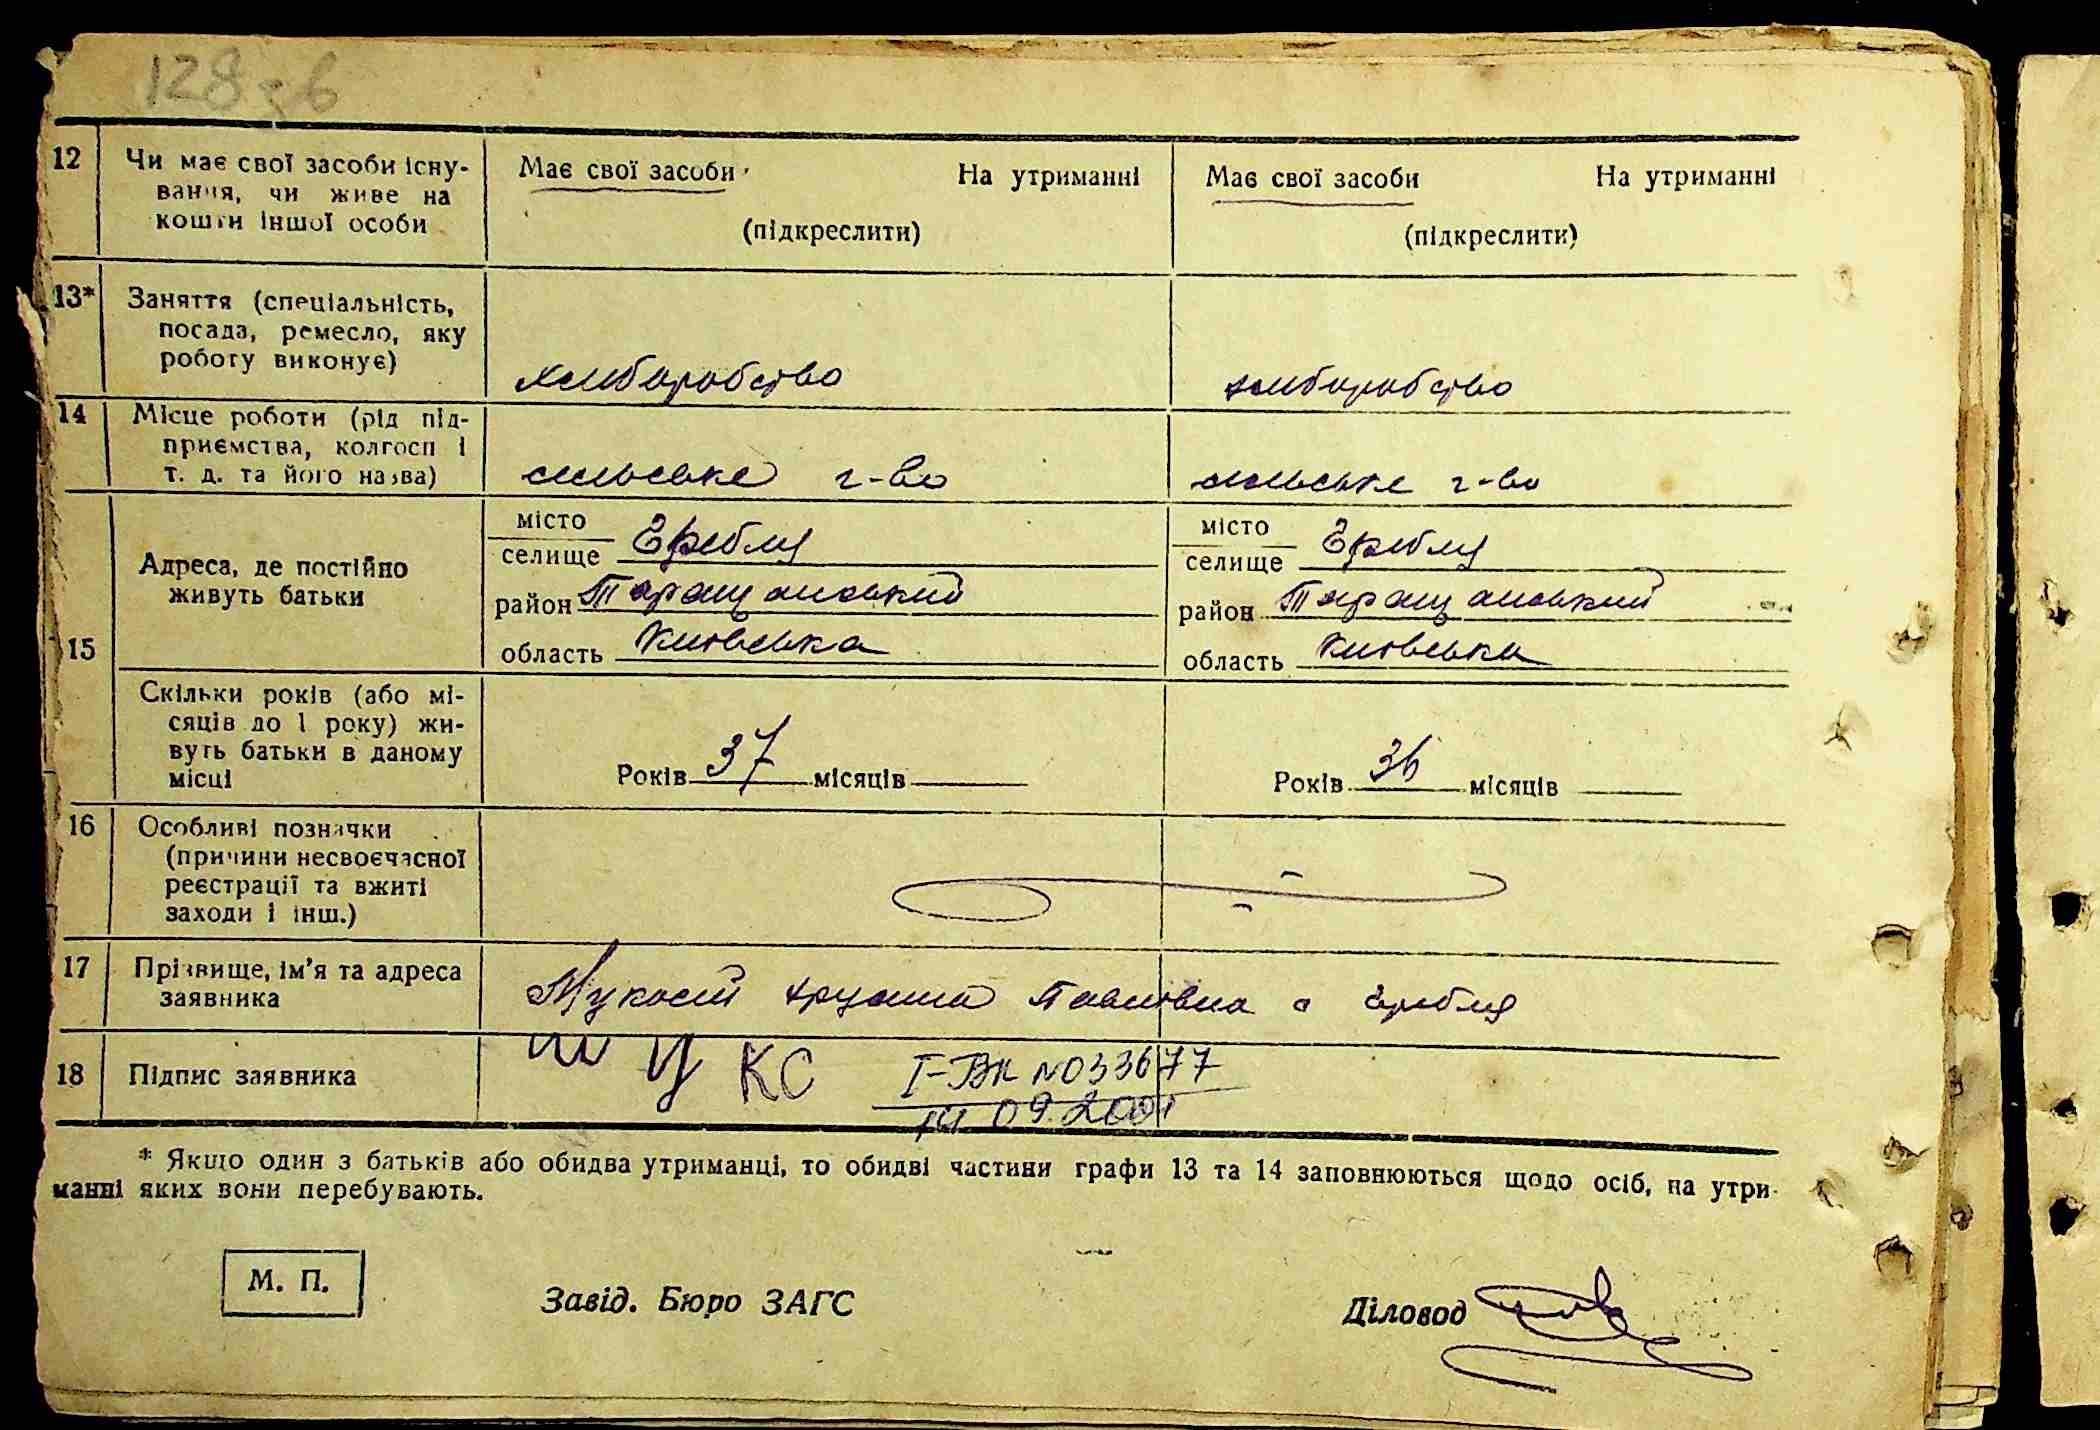 128 зв
12 Чи має свої засоби існу-
вання, чи живе на
кошти іншої особи
Має свої засоби На утриманні
(підкреслити)
Має свої засоби На утриманні
(підкреслити)
13* Заняття (спеціальність,
посада, ремесло, яку
роботу виконує)
хліборобство
хліборобство
14 Місце роботи (рід під-
приємства, колгосп і
т. д. та його назва)
сільське г-во
сільське г-во
15
Адреса, де постійно
живуть батьки
місто
селище Гребля
район Таращанський
область Київська
місто
селище Гребля
район Таращанський
область Київська
Скільки років (або мі-
сяців до 1 року) жи-
вуть батьки в даному
місці
Років 37 місяців
Років 36 місяців
16 Особливі позначки
(причини несвоєчасної
реєстрації та вжиті
заходи і інш.)
17 Прізвище, ім'я та адреса
заявника
Мукосій Павловна с Гребля
18 Підпис заявника
КС I-ВК №033677
09.2001
* Якщо один з батьків або обидва утриманці, то обидві частини графи 13 та 14 заповнюються щодо осіб, на утри-
манні яких вони перебувають.
М. П.
Завід. Бюро ЗАГС
Діловод